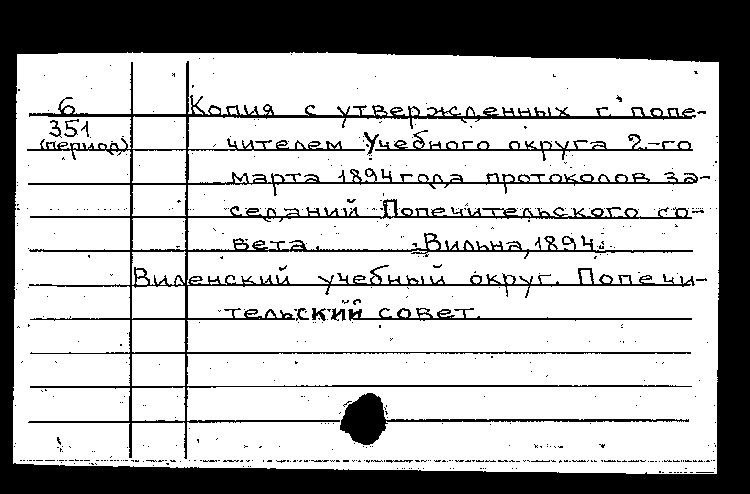 6
351
(период)
Копия с утвержденных г. попе-
чителем Учебного округа 2-го
марта 1894 года протоколов за-
седаний Попечительского со-
вета. Вильна, 1894.
Виленский учебный округ. Попечи-
тельский совет.